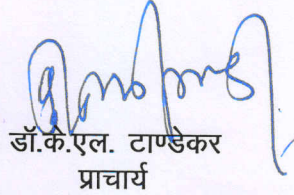 डॉ.के.एल. टाण्डेकर
प्राचार्य